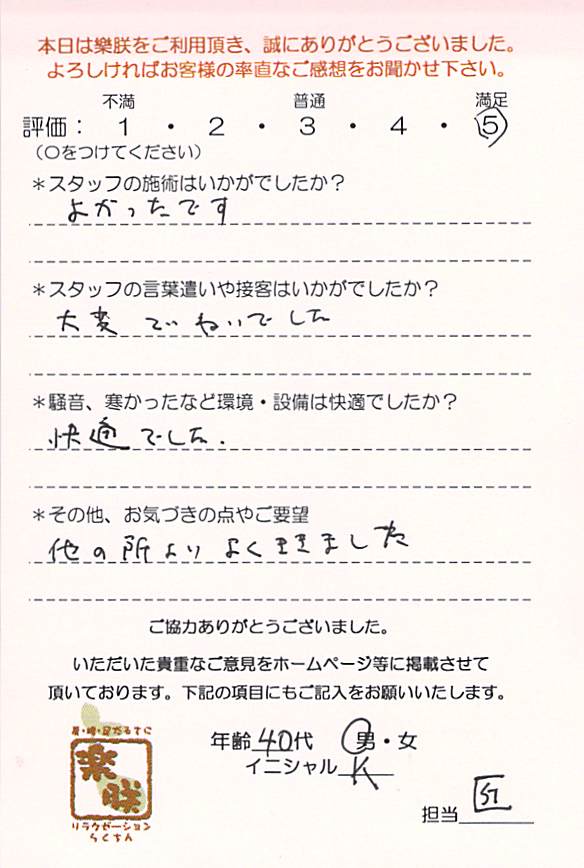 本日は樂朕をご利用頂き、誠にありがとうございました。
よろしければお客様の率直なご感想をお聞かせ下さい。
不満 普通 満足
評価： 1 ・ 2 ・ 3 ・ 4 ・ 5
（○をつけてください）
＊スタッフの施術はいかがでしたか？
よかったです
＊スタッフの言葉遣いや接客はいかがでしたか？
大変 ていねいでした
＊騒音、寒かったなど環境・設備は快適でしたか？
快適でした.
＊その他、お気づきの点やご要望
他の所より よくききました
ご協力ありがとうございました。
いただいた貴重なご意見をホームページ等に掲載させて
頂いております。下記の項目にもご記入をお願いいたします。
年齢 40代 男・女
イニシャル K
楽朕
リラクゼーション
らくちん
担当